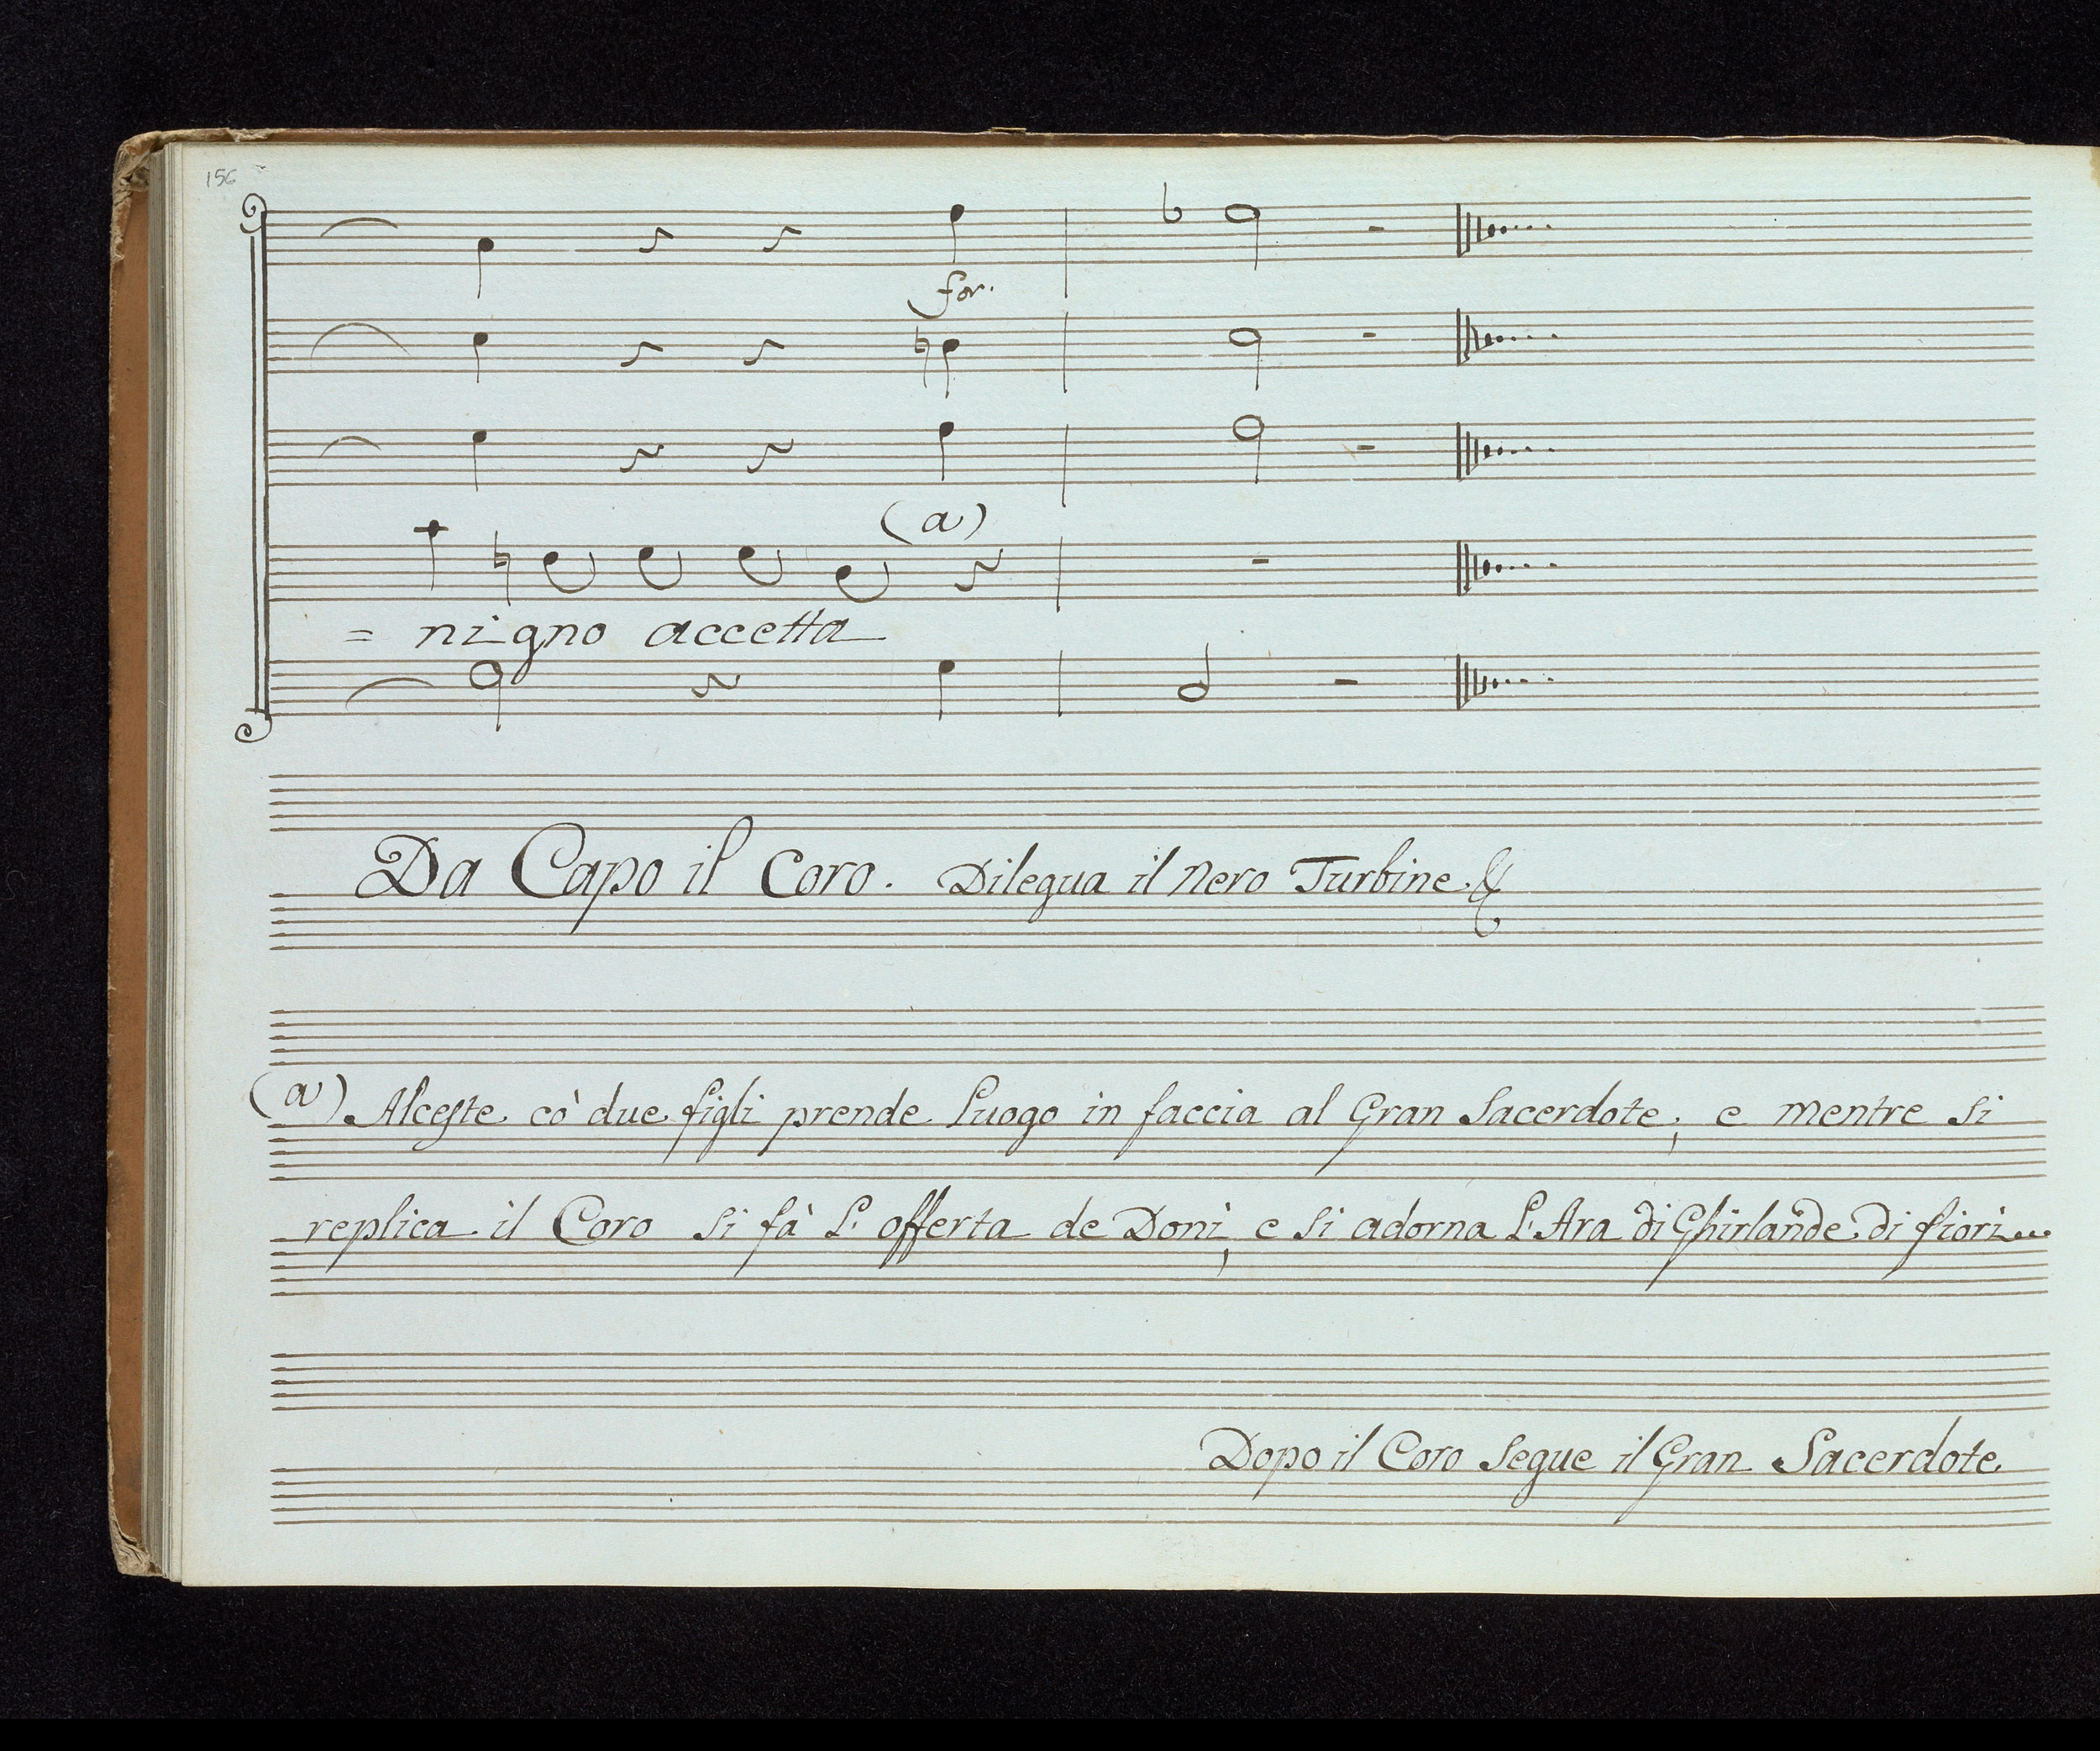 156
for.
(a)
= nigno accetta
Da Capo il Coro. Dilegua il nero Turbine &
(a) Alceste co' due figli prende luogo in faccia al Gran Sacerdote; e mentre si
replica il Coro si fà l'offerta de Doni, e si adorna l'Ara di Ghirlande di fiori
Dopo il Coro segue il Gran Sacerdote